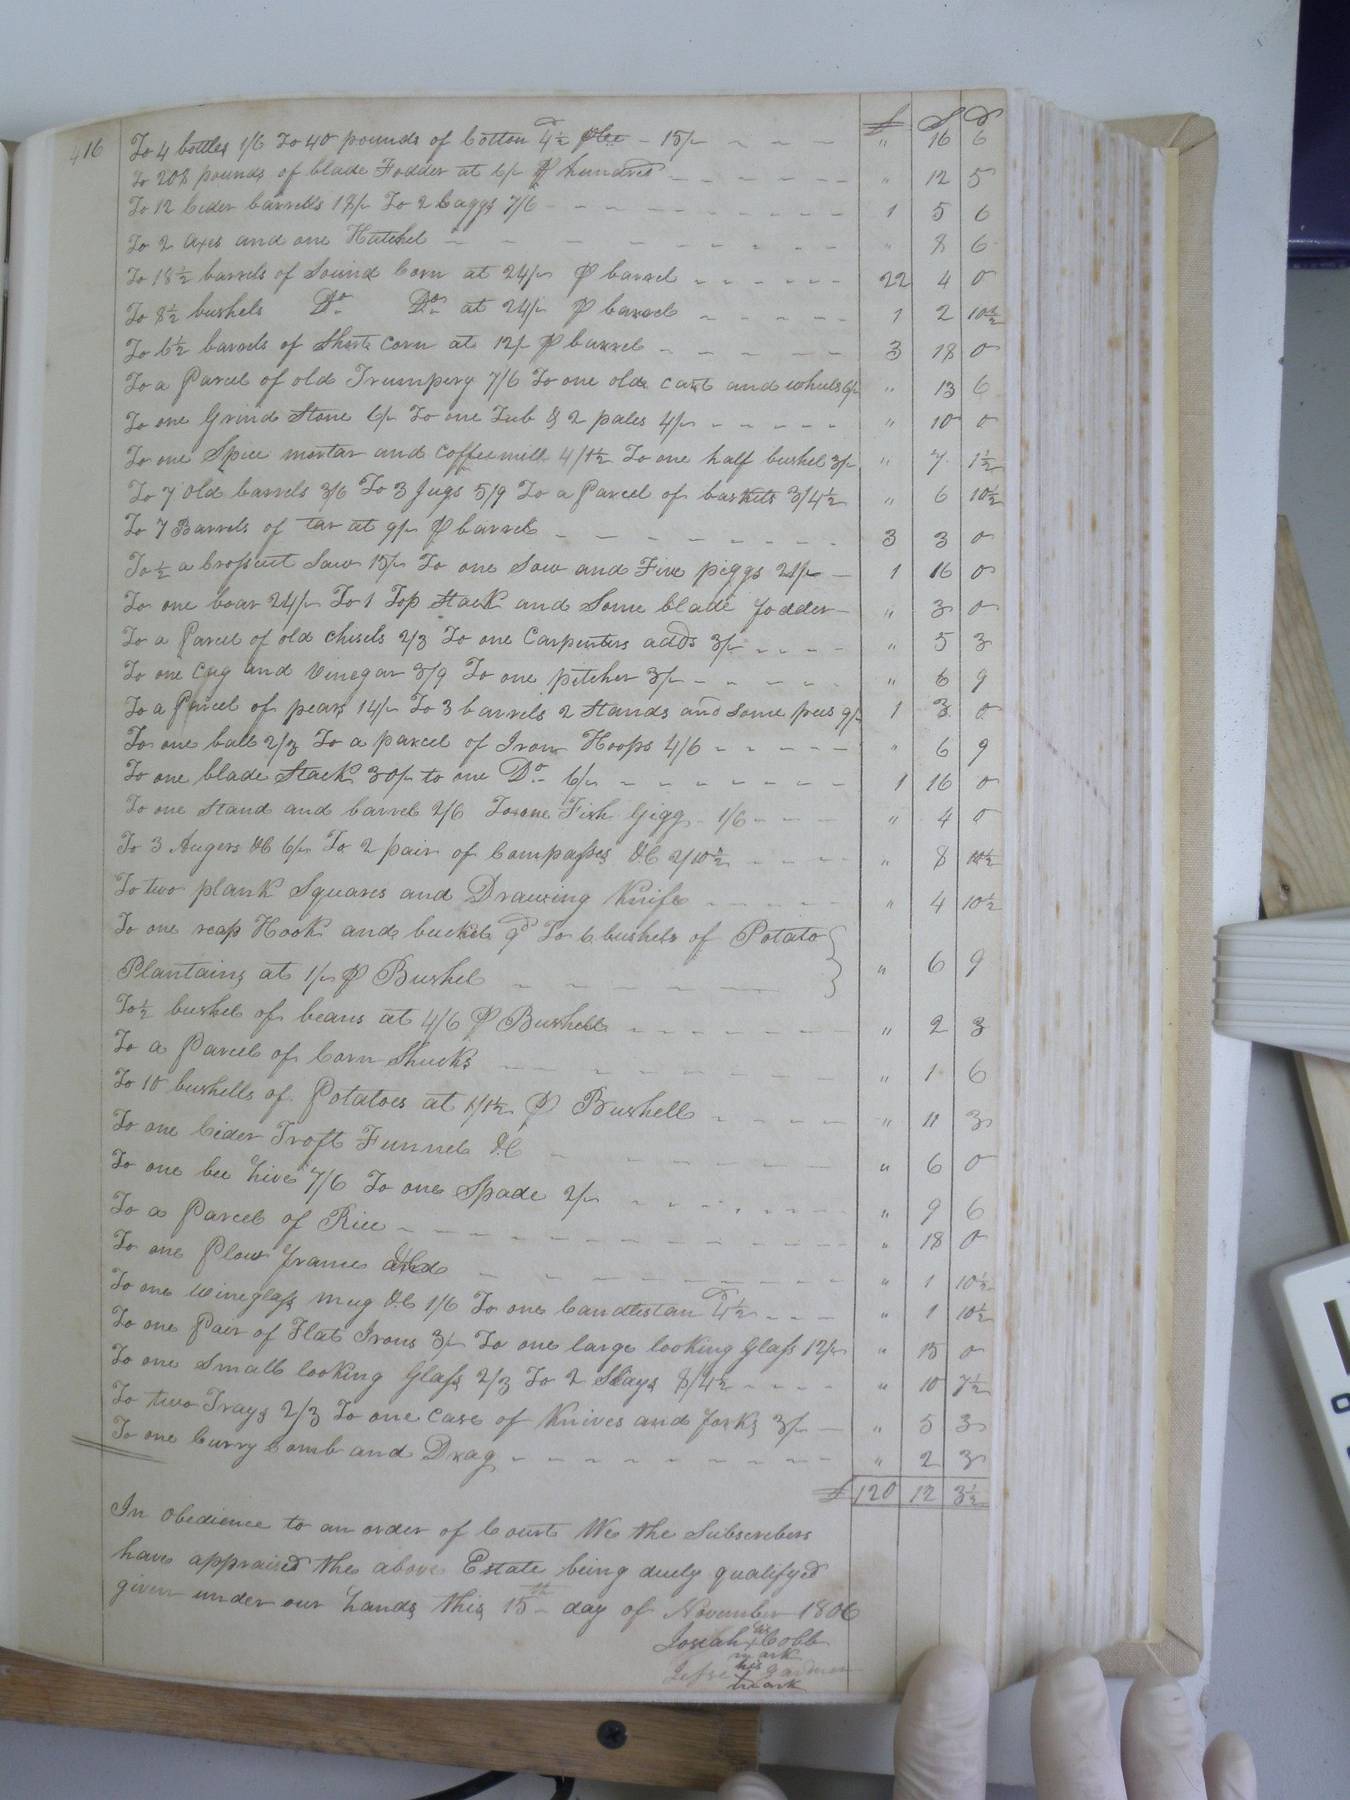 416
£ S D
To 4 bottles 1/6 To 40 pounds of Cotton 4½ d - 15/- " 16 6
To 208 pounds of blade Fodder at 6/- ⅌ hundred " 12 5
To 12 Cider barrells 18/- To 2 Caggs 7/6 1 5 6
To 2 axes and one Hatchel " 8 6
To 18½ barrels of Sound Corn at 24/- ⅌ barrel 22 4 0
To 8½ bushels Do Do at 24/- ⅌ barrel 1 2 10½
To 6½ barrels of Short Corn at 12/- ⅌ barrel 3 18 0
To a Parcel of old Trumpery 7/6 To one old cart and wheels 6/- " 13 6
To one Grind Stone 6/- To one Tub & 2 pales 4/- " 10 0
To one Spice mortar and coffeemill 4/1½ To one half bushel 3/- " 7 1½
To 7 old barrels 3/6 To 3 Jugs 5/9 To a Parcel of baskets 3/4½ " 6 10½
To 7 Barrels of tar at 9/- ⅌ barrel 3 3 0
To ½ a Crosscut Saw 15/- To one Sow and Five piggs 21/- 1 16 0
To one boar 24/- To 1 Top Stack and Some blade fodder " 3 0
To a Parcel of old chisels 2/3 To one Carpenters adds 3/- " 5 3
To one Cag and Vinegar 3/9 To one pitcher 3/- " 6 9
To a Parcel of peas 14/- To 3 barrels 2 Stands and some peas 9/- 1 3 0
To one ball 2/3 To a parcel of Iron Hoops 4/6 " 6 9
To one blade Stack 30/- to one Do 6/- 1 16 0
To one Stand and barrel 2/6 To one Fish Gigg 1/6 " 4 0
To 3 Augers &C 6/- To 2 pair of Compasses &C 2/10½ " 8 10½
To two plank Squares and Drawing Knife " 4 10½
To one reap Hook and bucket 9d To 6 bushels of Potato
Plantains at 1/- ⅌ Bushel " 6 9
To ½ bushel of beans at 4/6 ⅌ Bushell " 2 3
To a Parcel of Corn Shucks " 1 6
To 10 bushells of Potatoes at 1/1½ ⅌ Bushell " 11 3
To one Cider Troft Funnel &C " 6 0
To one bee hive 7/6 To one Spade 2/- " 9 6
To a Parcel of Rice " 18 0
To one Plow frame " 1 10½
To one wineglass mug &C 1/6 To one Candlestan 4½ d " 1 10½
To one Pair of Flat Irons 3/- To one large looking Glass 12/- " 15 0
To one Small looking Glass 2/3 To 2 Slays 8/4½ " 10 7½
To two Trays 2/3 To one case of Knives and forks 3/- " 5 3
To one Curry Comb and Drag " 2 3
£ 120 12 3½
In Obedience to an order of Court We the Subscribers
have appraised the above Estate being duely qualifyed
given under our hands this 15th day of November 1806
his
Josiah x Cobb
mark
his
Jesse Gardner
mark